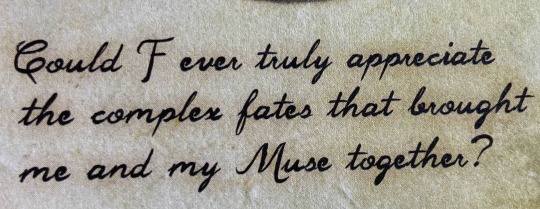 Could I ever truly appreciate
the complex fates that brought
me and my Muse together?